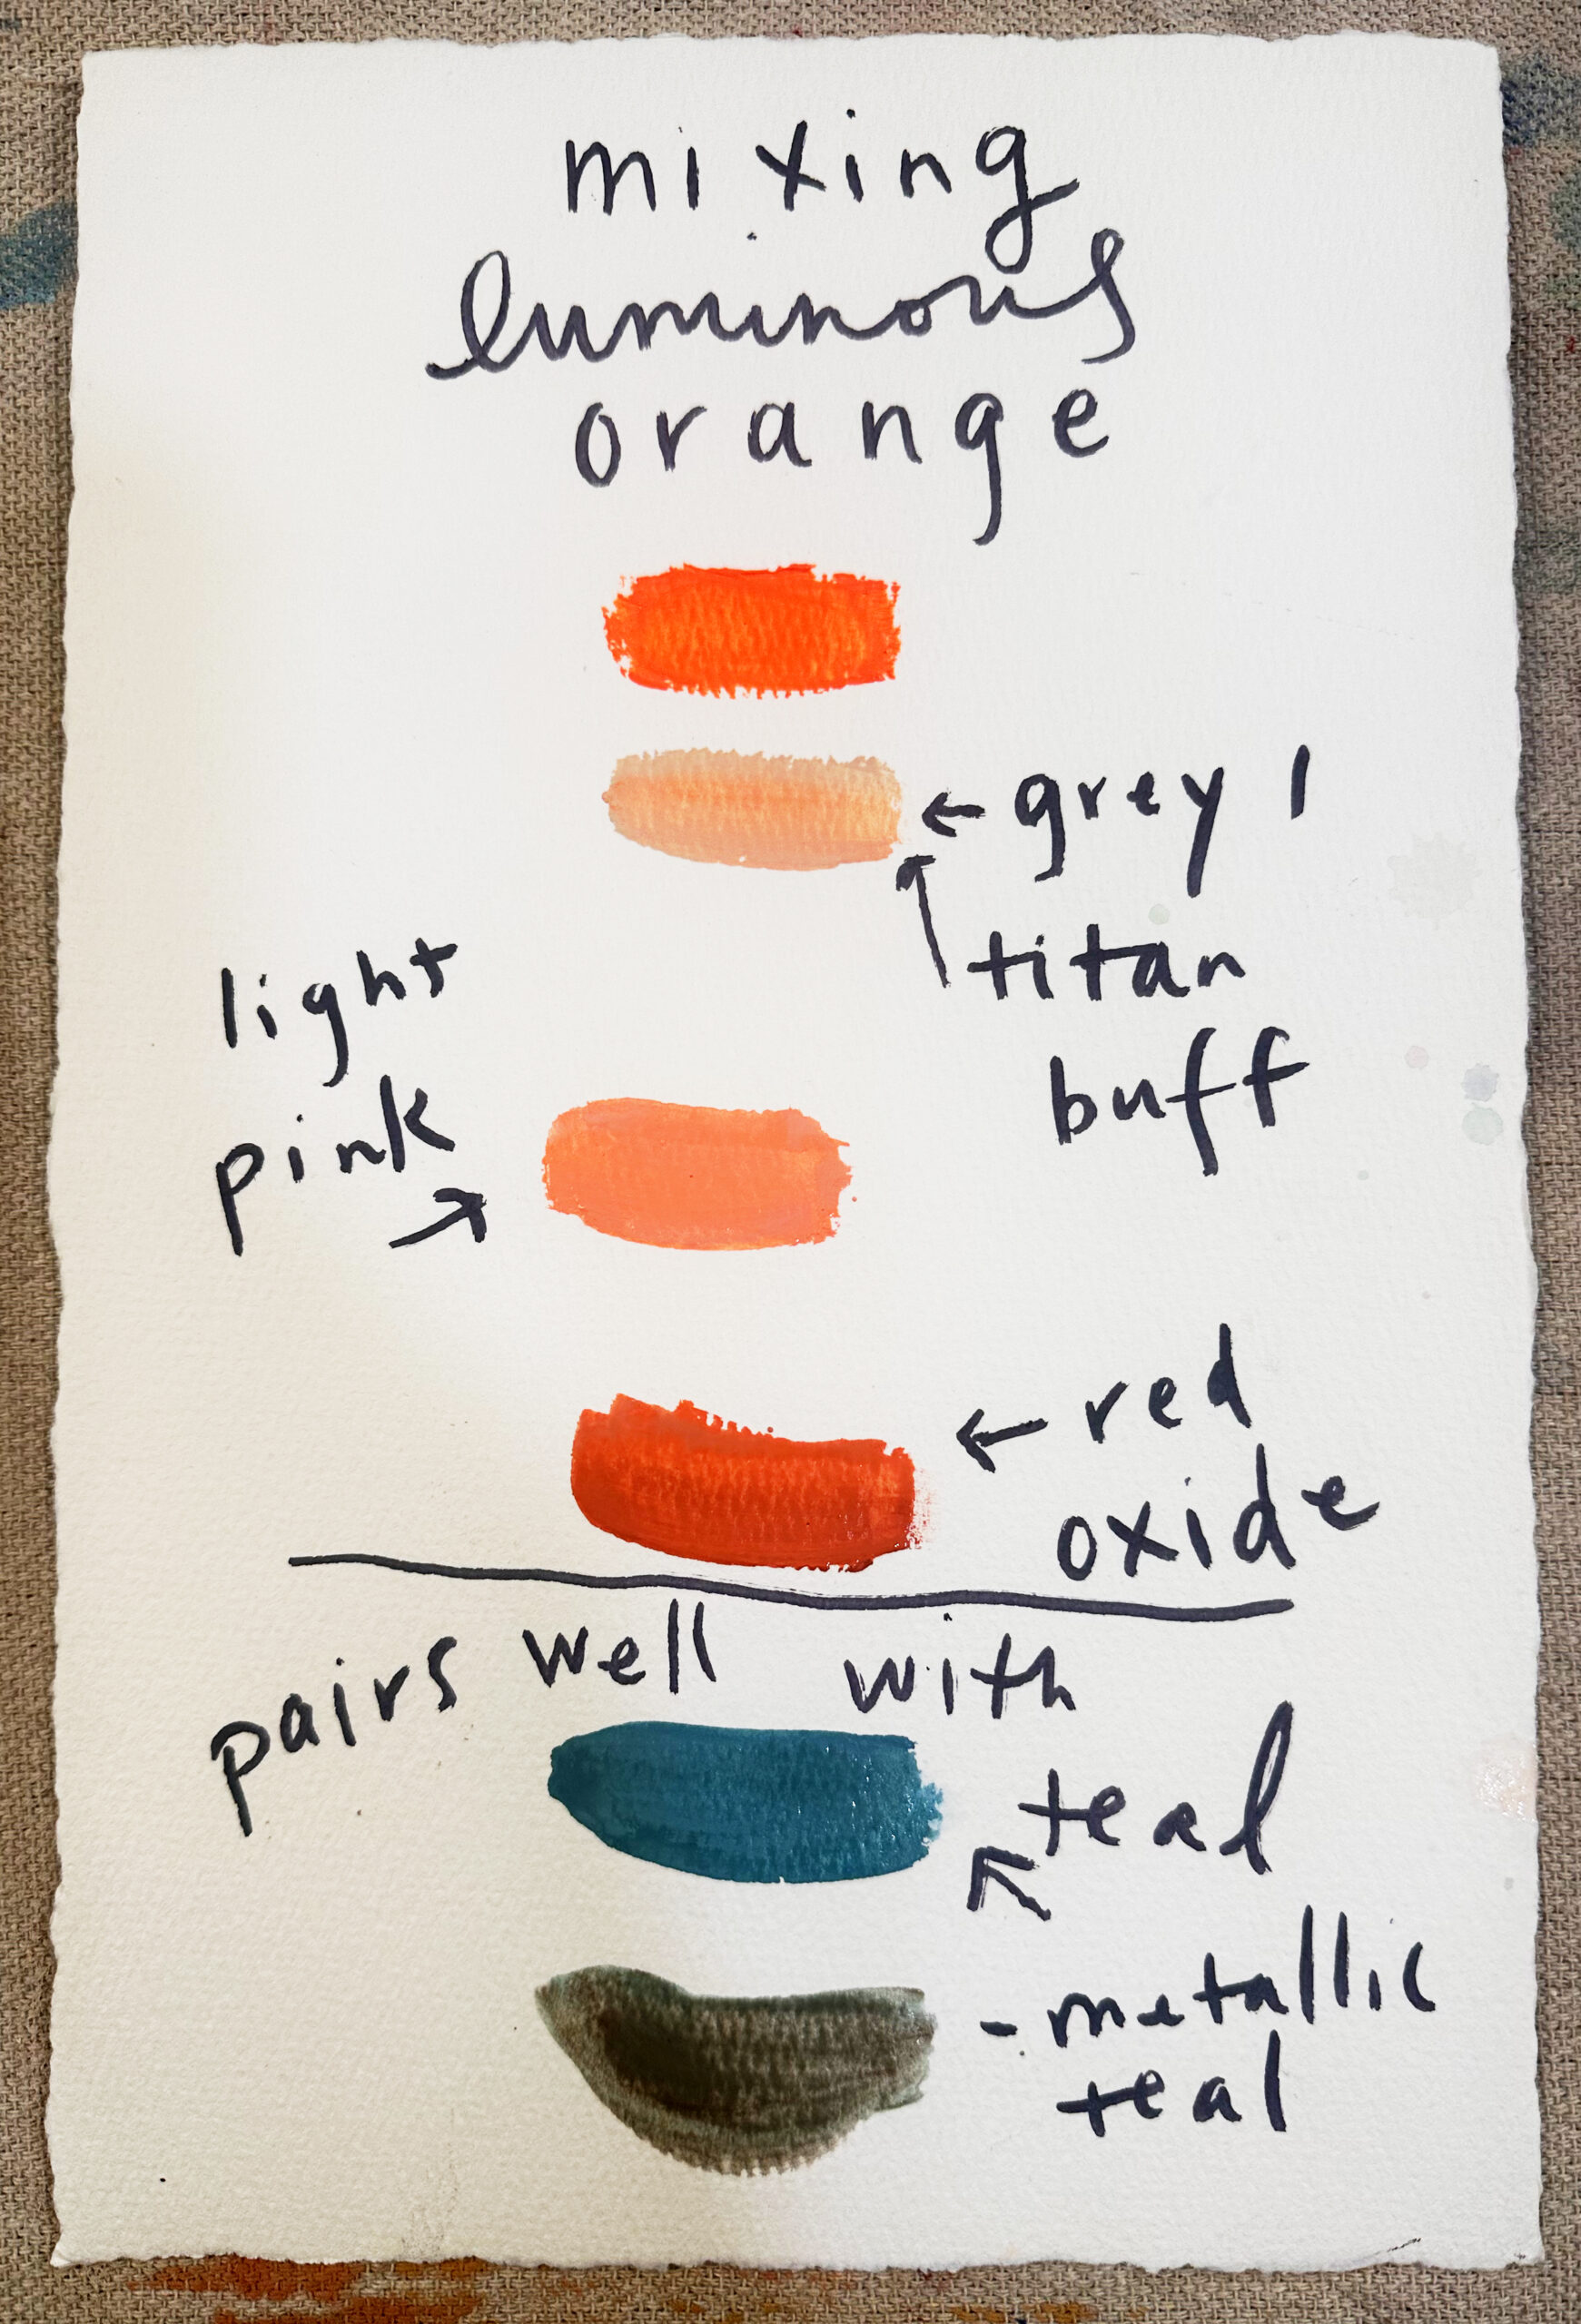 mixing
luminous
orange
← grey 1
↑ titan
buff
light
pink
→
← red
oxide
pairs well with
teal
↖
- metallic
teal